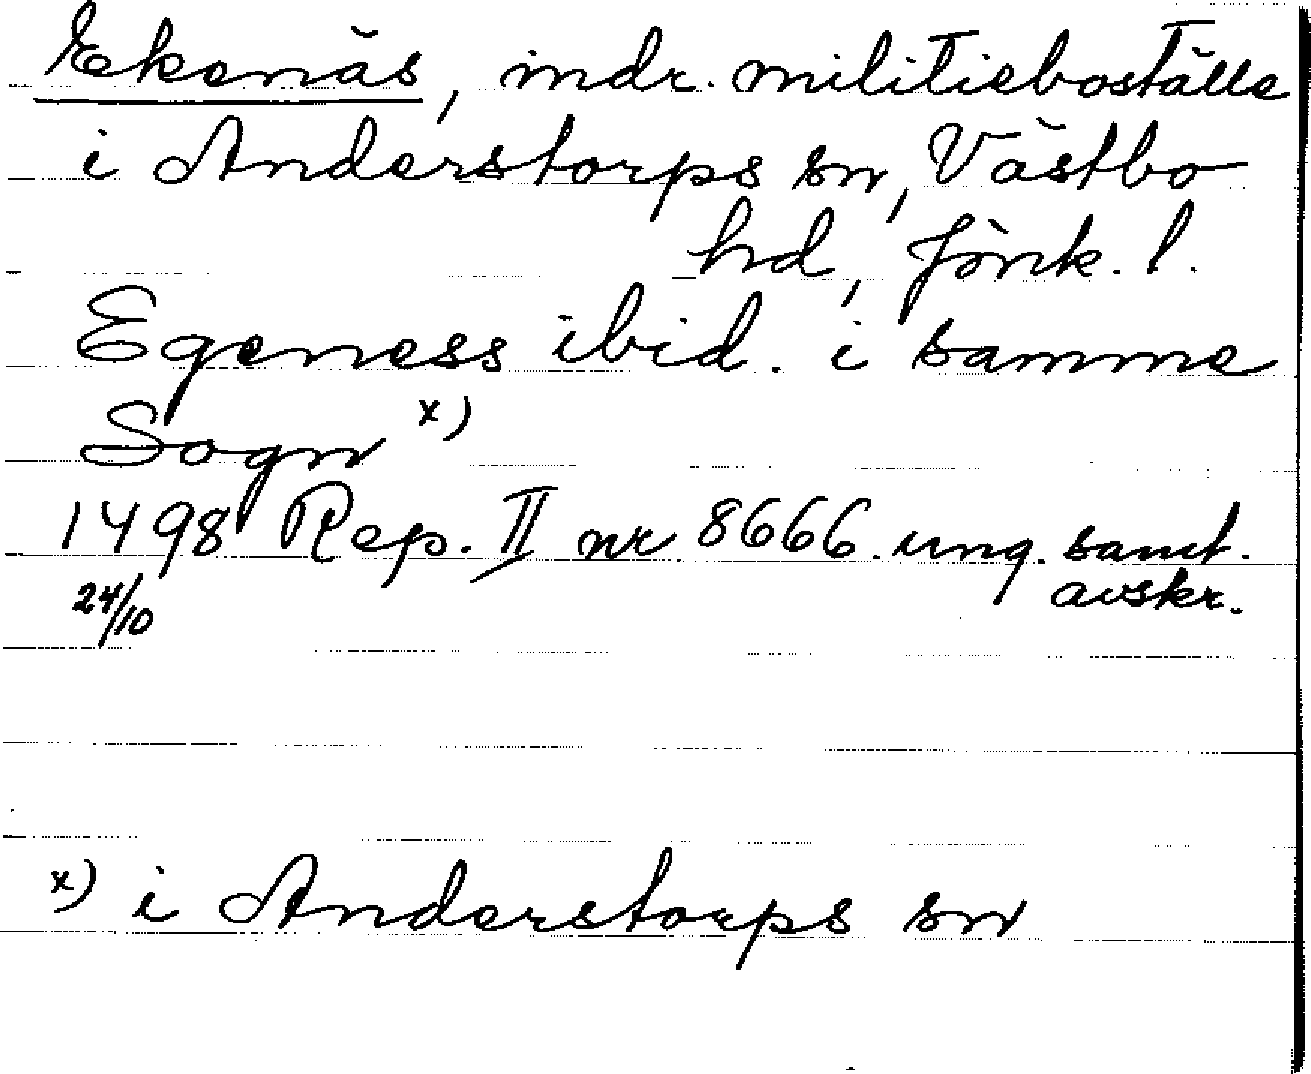 Ekenäs, indr. militieboställe
i Anderstorps sn, Västbo
hd, Jönk. l.
Egeness ibid. i samme
Sogn x)
1498 Rep. II nr 8666. ung. samt.
24/10 avskr.
x) i Anderstorps sn